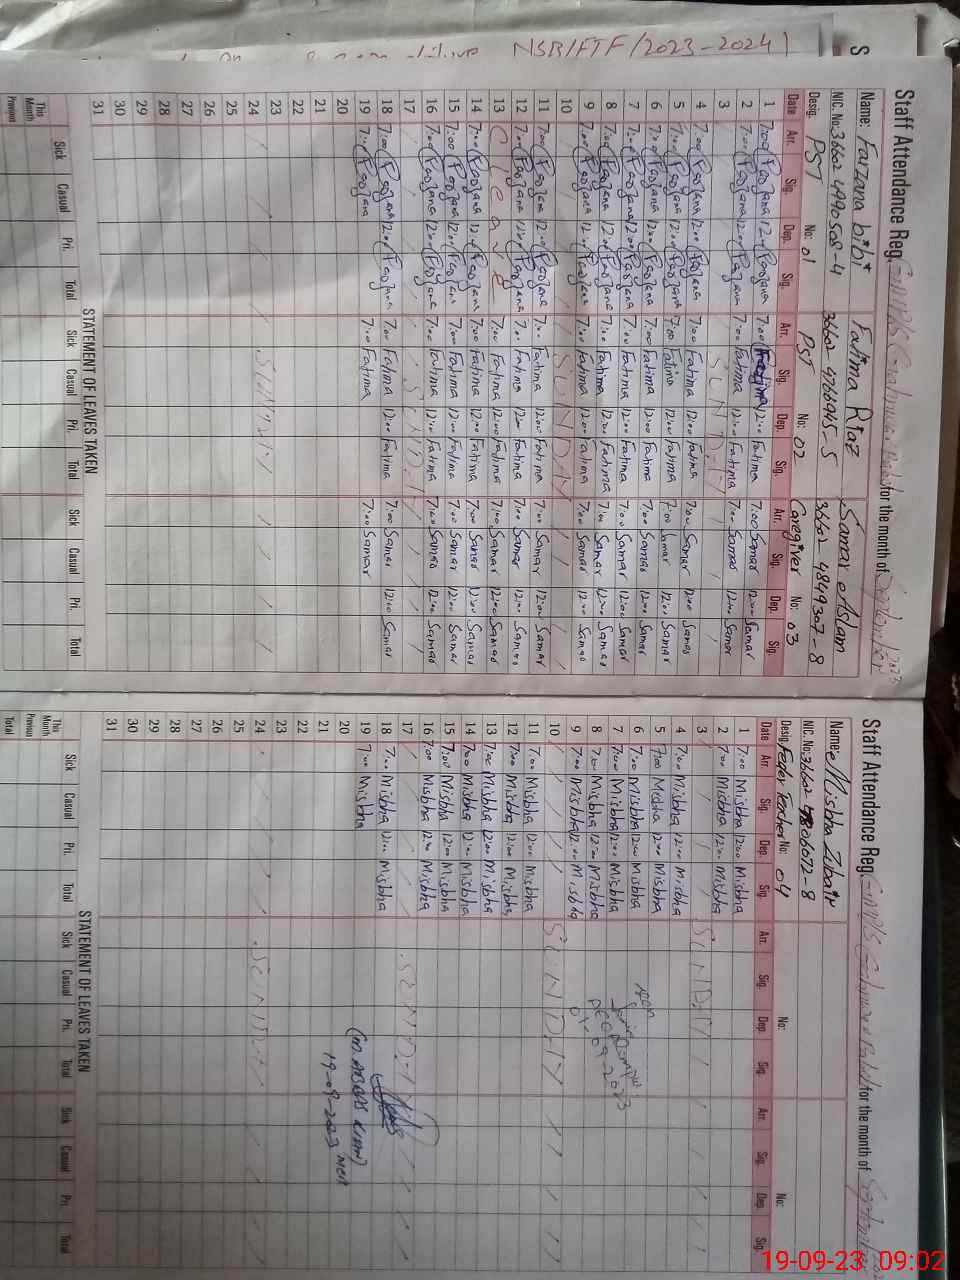 NSB/FTF/2023-2024
Staff Attendance Reg. for the month of September 2023
Name: Farzana bibi Fatima Riaz Samar Aslam
NIC. No. 36602 4990508-4 36602 4766945-5 36602 4849307-8
Desig. PST No: 01 PST No: 02 Caregiver No: 03
Date Arr. Sig. Dep. Sig. Arr. Sig. Dep. Sig. Arr. Sig. Dep. Sig.
1 7:00 Farzana 12:00 Farzana 7:00 Fatima 12:00 Fatima 7:00 Samar 12:00 Samar
2 7:00 Farzana 12:00 Farzana 7:00 Fatima 12:00 Fatima 7:00 Samar 12:00 Samar
3 SUNDAY
4 7:00 Farzana 12:00 Farzana 7:00 Fatima 12:00 Fatima 7:00 Samar 12:00 Samar
5 7:00 Farzana 12:00 Farzana 7:00 Fatima 12:00 Fatima 7:00 Samar 12:00 Samar
6 7:00 Farzana 12:00 Farzana 7:00 Fatima 12:00 Fatima 7:00 Samar 12:00 Samar
7 7:00 Farzana 12:00 Farzana 7:00 Fatima 12:00 Fatima 7:00 Samar 12:00 Samar
8 7:00 Farzana 12:00 Farzana 7:00 Fatima 12:00 Fatima 7:00 Samar 12:00 Samar
9 7:00 Farzana 12:00 Farzana 7:00 Fatima 12:00 Fatima 7:00 Samar 12:00 Samar
10 SUNDAY
11 7:00 Farzana 12:00 Farzana 7:00 Fatima 12:00 Fatima 7:00 Samar 12:00 Samar
12 7:00 Farzana 12:00 Farzana 7:00 Fatima 12:00 Fatima 7:00 Samar 12:00 Samar
13 C Leave 7:00 Fatima 12:00 Fatima 7:00 Samar 12:00 Samar
14 7:00 Farzana 12:00 Farzana 7:00 Fatima 12:00 Fatima 7:00 Samar 12:00 Samar
15 7:00 Farzana 12:00 Farzana 7:00 Fatima 12:00 Fatima 7:00 Samar 12:00 Samar
16 7:00 Farzana 12:00 Farzana 7:00 Fatima 12:00 Fatima 7:00 Samar 12:00 Samar
17 SUNDAY
18 7:00 Farzana 12:00 Farzana 7:00 Fatima 12:00 Fatima 7:00 Samar 12:00 Samar
19 7:00 Farzana 7:00 Fatima 7:00 Samar
20
21
22
23
24 SUNDAY
25
26
27
28
29
30
31
STATEMENT OF LEAVES TAKEN
Sick Casual Pri. Total Sick Casual Pri. Total Sick Casual Pri. Total
This Month
Previous
Staff Attendance Reg. for the month of
Name: Misbha Zubair
NIC. No. 36602
Desig. Teacher No: 04 No: No:
Date Arr. Sig. Dep. Sig. Arr. Sig. Dep. Sig. Arr. Sig. Dep. Sig.
1 7:00 Misbha 12:00 Misbha
2 7:00 Misbha 12:00 Misbha
3 SUNDAY
4 7:00 Misbha 12:00 Misbha
5 7:00 Misbha 12:00 Misbha
6 7:00 Misbha 12:00 Misbha
7 7:00 Misbha 12:00 Misbha
8 7:00 Misbha 12:00 Misbha
9 7:00 Misbha 12:00 Misbha
10 SUNDAY
11 7:00 Misbha 12:00 Misbha
12 7:00 Misbha 12:00 Misbha
13 7:00 Misbha 12:00 Misbha
14 7:00 Misbha 12:00 Misbha
15 7:00 Misbha 12:00 Misbha
16 7:00 Misbha 12:00 Misbha
17 SUNDAY
18 7:00 Misbha 12:00 Misbha
19 7:00 Misbha
20
21 19-09-2023
22
23
24 SUNDAY
25
26
27
28
29
30
31
STATEMENT OF LEAVES TAKEN
Sick Casual Pri. Total Sick Casual Pri. Total Sick Casual Pri. Total
This Month
Previous
Total
19-09-23 09:02